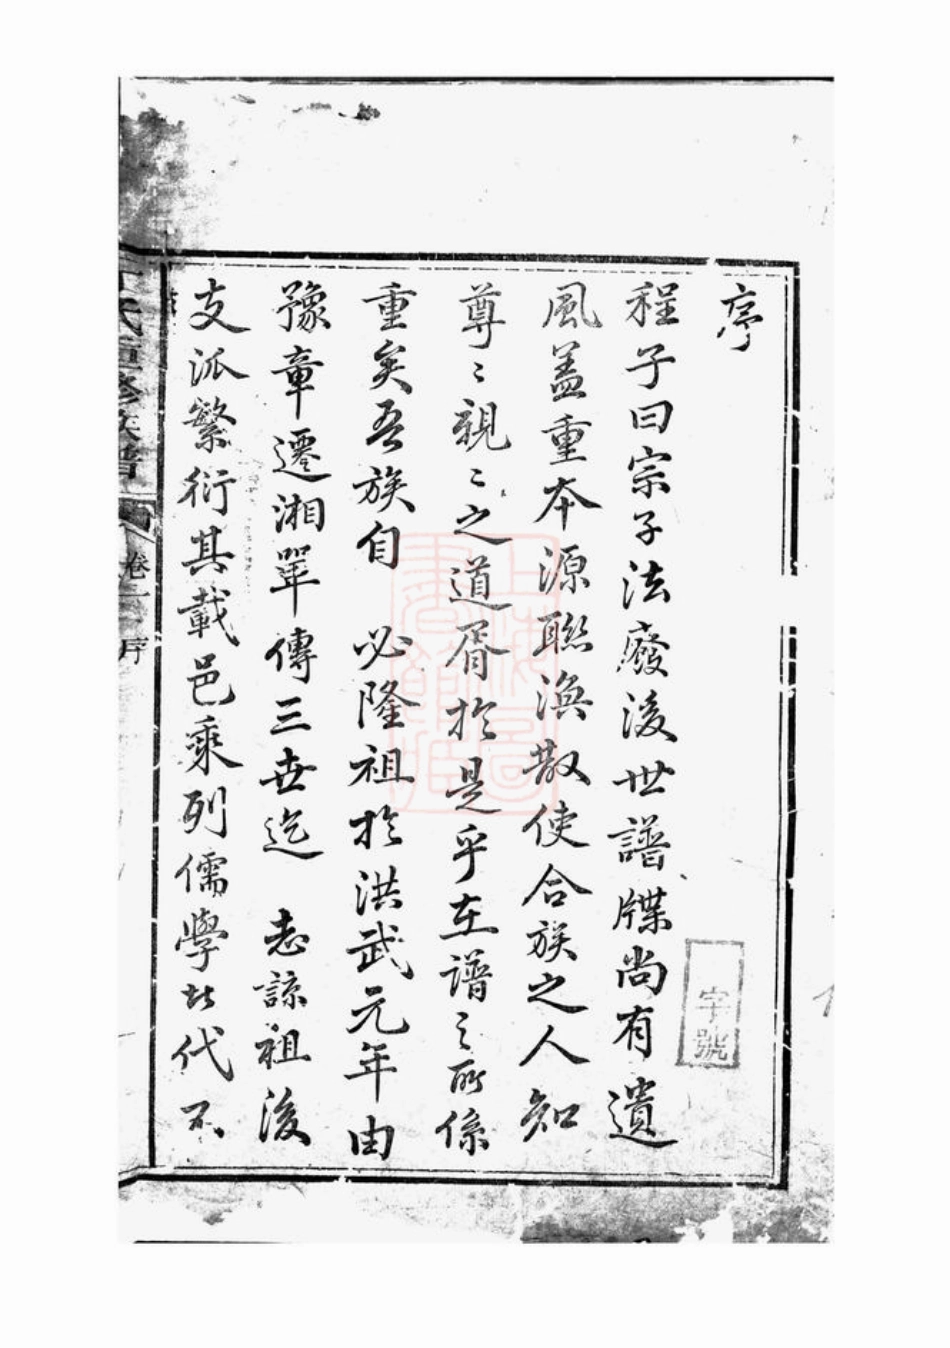 序
程子曰宗子法廢後世譜牒尚有遺
風蓋重本源聯渙散使合族之人知
尊〻親〻之道胥於是乎在譜之所係
重矣吾族自 必隆祖於洪武元年由
豫章遷湘單傳三世迄 志諒祖後
支派繁衍其載邑乘列儒學者代不
氏重修族譜 卷一 序
字號
上海圖書館藏